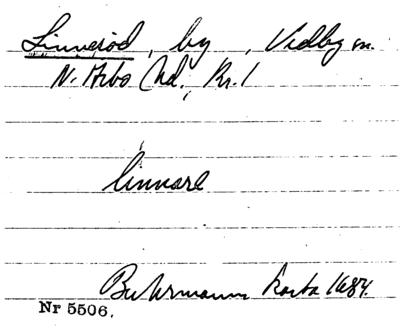 Linneröd, by, Vedby sn.
N. Åsbo hd, Kr. l
linnare
Buhrmann karta 1684.
Nr 5506.